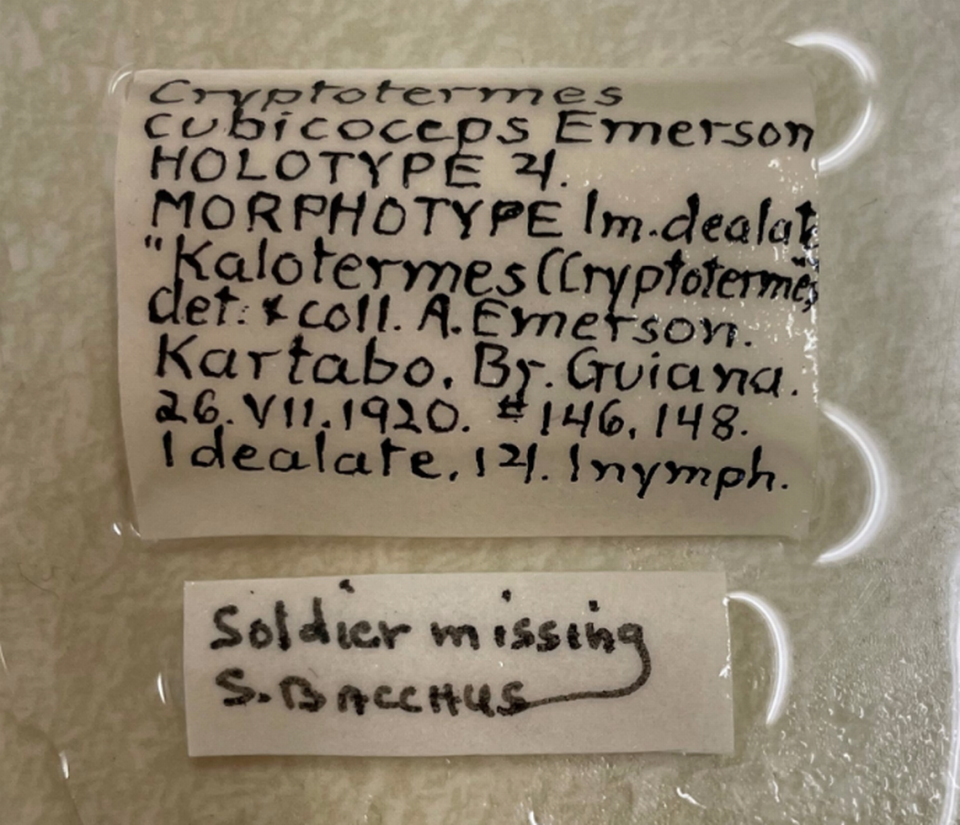 Cryptotermes
cubicoceps Emerson
HOLOTYPE ♃.
MORPHOTYPE Im.dealat
"Kalotermes (Cryptotermes"
det. & coll. A. Emerson.
Kartabo. Br. Guiana.
26.VII.1920. #146, 148.
1 dealate. 1 ♃. 1 nymph.
Soldier missing
S. BACCHUS